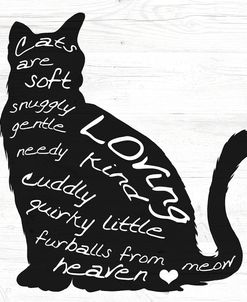 Cats
are
soft
snuggly
gentle
needy
LOving
kind
cuddly
quirky little
furballs from
heaven
meow